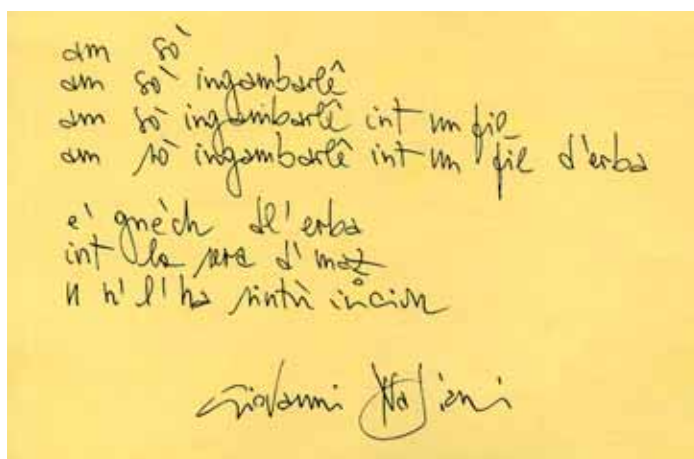 am sò
am sò ingambarlê
am sò ingambarlê int un fil
am sò ingambarlê int un fil d'erba
e' gnèch dl'erba
int la sera d'maz
n n' l'ha sintù inciun
Giovanni Nadiani